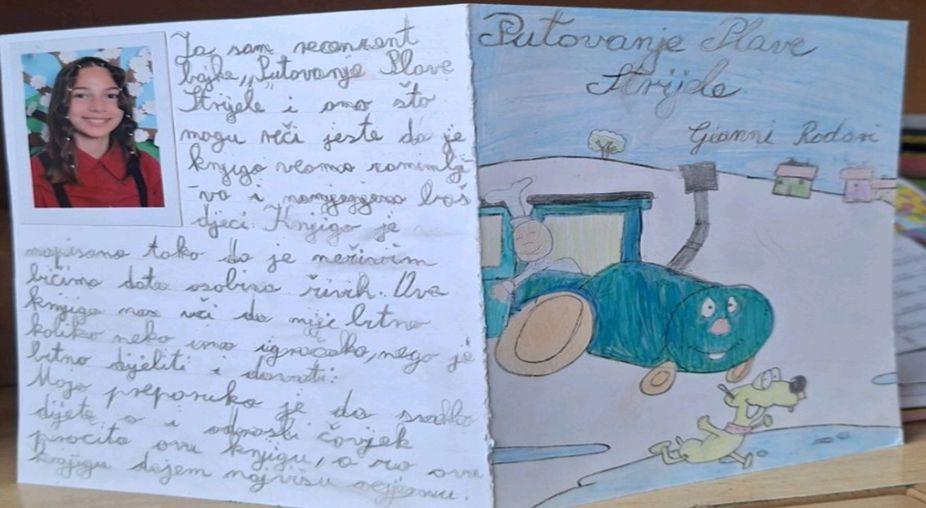 Ja sam recenzent
bajke „Putovanje Plave
Strijele" i ono što
mogu reči jeste da je
knjiga veoma zanimlji
-va i namjenjena baš
djeci. Knjiga je
napisana tako da je neživim
bićima data osobina živih. Ova
knjiga nas uči da nije bitno
koliko neko ima igračaka, nego je
bitno dijeliti i davati.
Moja preporuka je da svako
dijete, a i odrasli čovjek
pročita ovu knjigu, a za ovu
knjigu dajem najvišu ocjenu.
Putovanje Plave
Strijele
Gianni Rodari